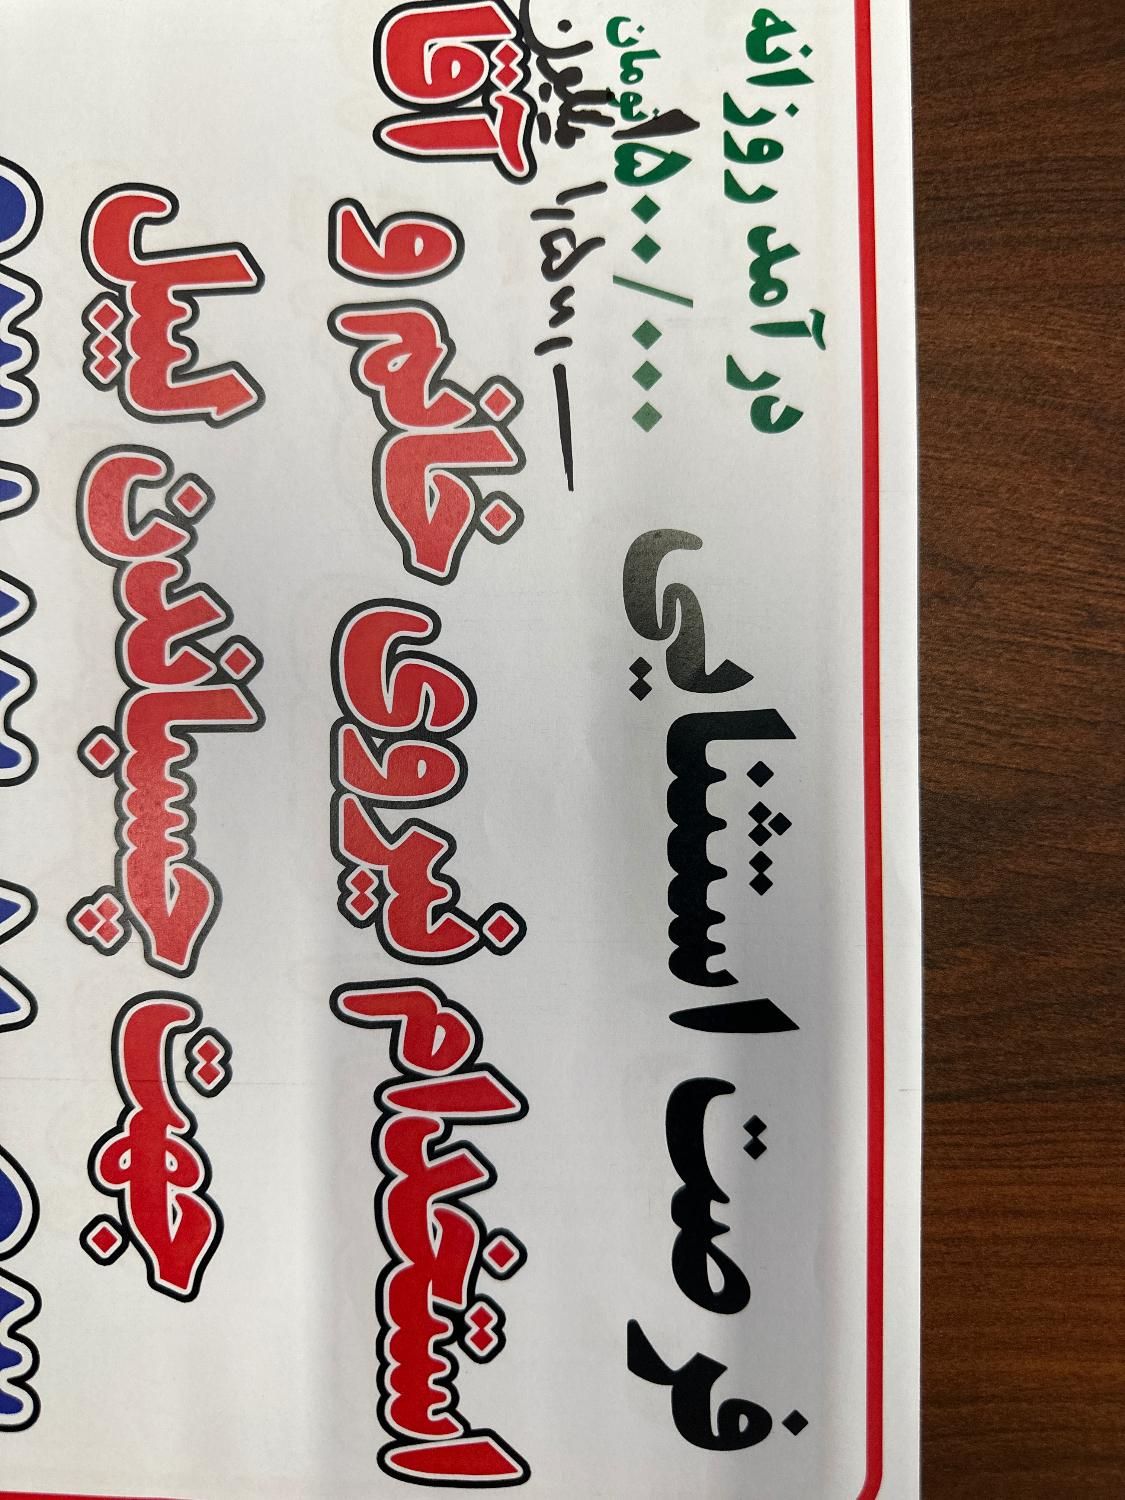 فرصت استثنایی
درآمد روزانه
۱۵۰۰/۰۰۰ تومان
میلیون
استخدام نیروی خانم و آقا
جهت چسباندن لیبل